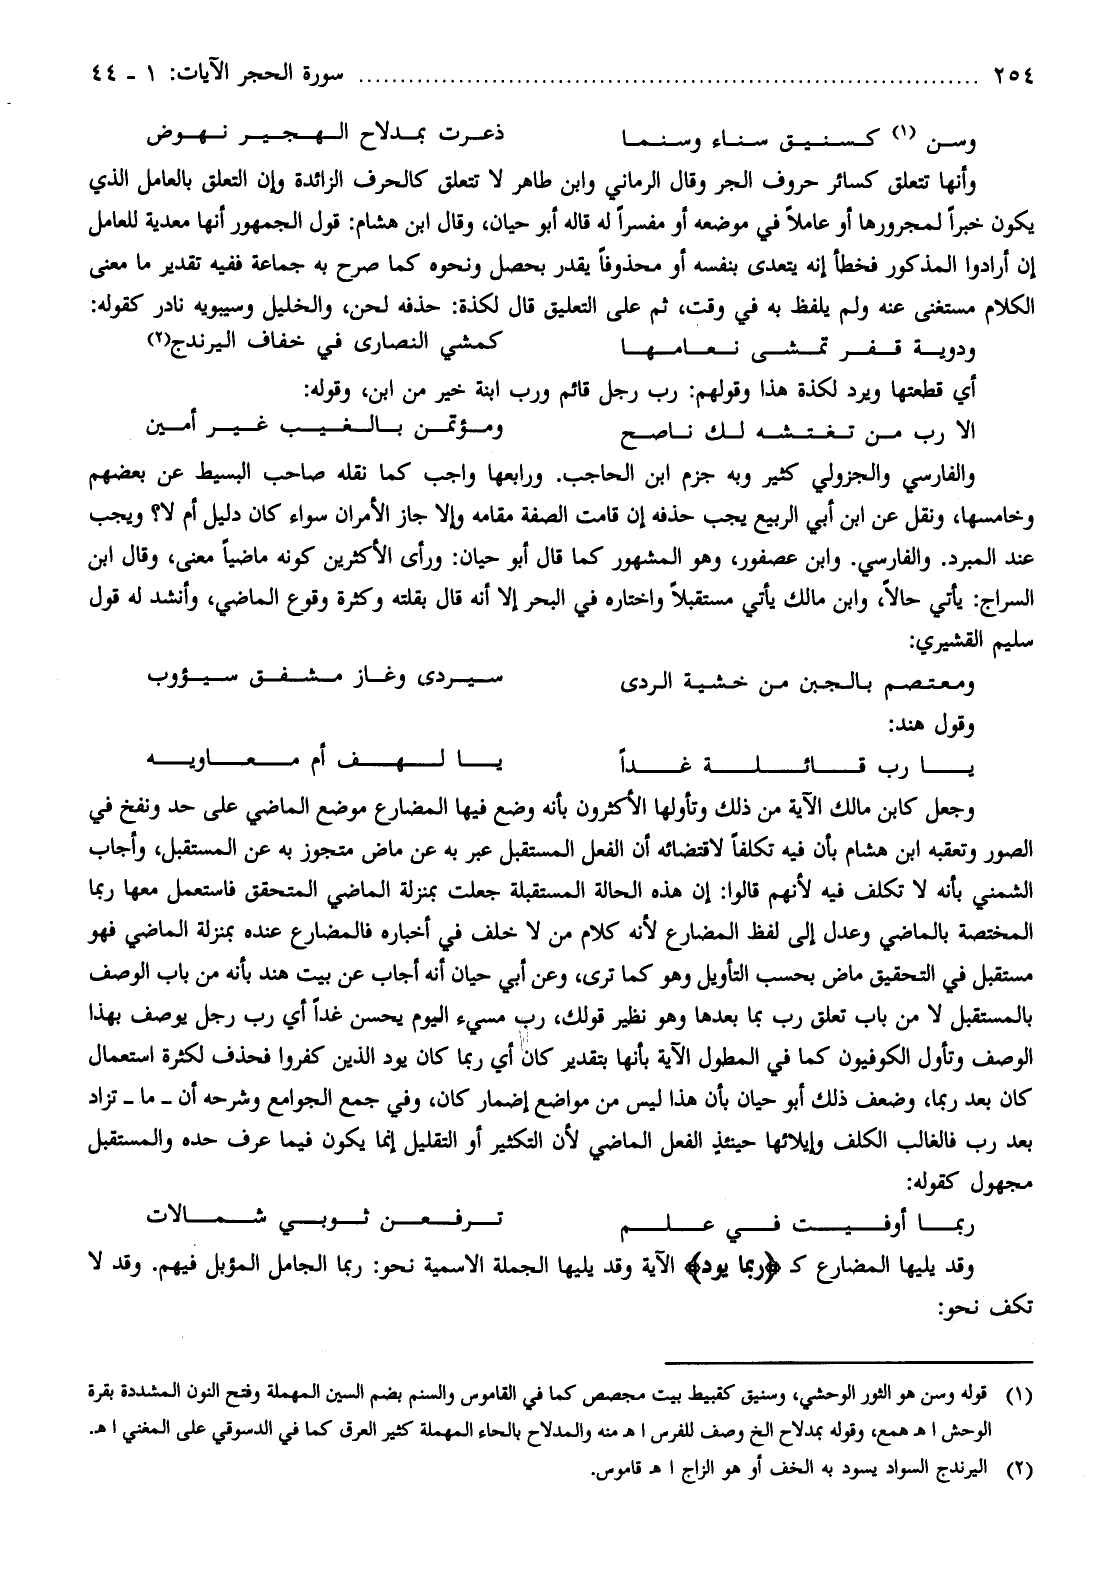 ٢٥٤ ........................................................................... سورة الحجر الآيات: ١ - ٤٤
وسن (١) كسنيق سناء وسنما ذعرت بمدلاح الهجير نهوض
وأنها تتعلق كسائر حروف الجر وقال الرماني وابن طاهر لا تتعلق كالحرف الزائدة وإن التعلق بالعامل الذي
يكون خبراً لمجرورها أو عاملاً في موضعه أو مفسراً له قاله أبو حيان، وقال ابن هشام: قول الجمهور أنها معدية للعامل
إن أرادوا المذكور فخطأ إنه يتعدى بنفسه أو محذوفاً يقدر بحصل ونحوه كما صرح به جماعة ففيه تقدير ما معنى
الكلام مستغنى عنه ولم يلفظ به في وقت، ثم على التعليق قال لكذة: حذفه لحن، والخليل وسيبويه نادر كقوله:
ودوية قفر تمشى نعامها كمشي النصارى في خفاف اليرندج(٢)
أي قطعتها ويرد لكذة هذا وقولهم: رب رجل قائم ورب ابنة خير من ابن، وقوله:
الا رب من تغتشه لك ناصح ومؤتمن بالغيب غير أمين
والفارسي والجزولي كثير وبه جزم ابن الحاجب. ورابعها واجب كما نقله صاحب البسيط عن بعضهم
وخامسها، ونقل عن ابن أبي الربيع يجب حذفه إن قامت الصفة مقامه وإلا جاز الأمران سواء كان دليل أم لا؟ ويجب
عند المبرد. والفارسي. وابن عصفور، وهو المشهور كما قال أبو حيان: ورأى الأكثرين كونه ماضياً معنى، وقال ابن
السراج: يأتي حالاً، وابن مالك يأتي مستقبلاً واختاره في البحر إلا أنه قال بقلته وكثرة وقوع الماضي، وأنشد له قول
سليم القشيري:
ومعتصم بالجبن من خشية الردى سيردى وغاز مشفق سيؤوب
وقول هند:
يا رب قائلة غداً يا لهف أم معاويه
وجعل كابن مالك الآية من ذلك وتأولها الأكثرون بأنه وضع فيها المضارع موضع الماضي على حد ونفخ في
الصور وتعقبه ابن هشام بأن فيه تكلفاً لاقتضائه أن الفعل المستقبل عبر به عن ماض متجوز به عن المستقبل، وأجاب
الشمني بأنه لا تكلف فيه لأنهم قالوا: إن هذه الحالة المستقبلة جعلت بمنزلة الماضي المتحقق فاستعمل معها ربما
المختصة بالماضي وعدل إلى لفظ المضارع لأنه كلام من لا خلف في أخباره فالمضارع عنده بمنزلة الماضي فهو
مستقبل في التحقيق ماض بحسب التأويل وهو كما ترى، وعن أبي حيان أنه أجاب عن بيت هند بأنه من باب الوصف
بالمستقبل لا من باب تعلق رب بما بعدها وهو نظير قولك، رب مسيء اليوم يحسن غداً أي رب رجل يوصف بهذا
الوصف وتأول الكوفيون كما في المطول الآية بأنها بتقدير كان أي ربما كان يود الذين كفروا فحذف لكثرة استعمال
كان بعد ربما، وضعف ذلك أبو حيان بأن هذا ليس من مواضع إضمار كان، وفي جمع الجوامع وشرحه أن ـ ما ـ تزاد
بعد رب فالغالب الكلف وإيلائها حينئذٍ الفعل الماضي لأن التكثير أو التقليل إنما يكون فيما عرف حده والمستقبل
مجهول كقوله:
ربما أوفيت في علم ترفعن ثوبي شمالات
وقد يليها المضارع كـ ﴿ربما يود﴾ الآية وقد يليها الجملة الاسمية نحو: ربما الجامل المؤبل فيهم. وقد لا
تكف نحو:
(١) قوله وسن هو الثور الوحشي، وسنيق كقبيط بيت مجصص كما في القاموس والسنم بضم السين المهملة وفتح النون المشددة بقرة
الوحش ا هـ همع، وقوله بمدلاح الخ وصف للفرس ا هـ منه والمدلاح بالحاء المهملة كثير العرق كما في الدسوقي على المغني ا هـ.
(٢) اليرندج السواد يسود به الخف أو هو الزاج ا هـ قاموس.